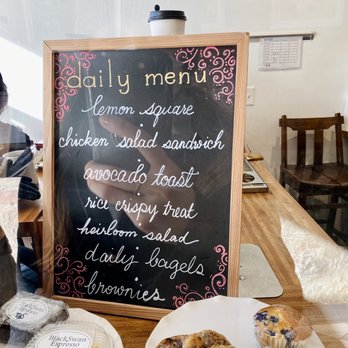 daily menu
lemon square
chicken salad sandwich
avocado toast
rice crispy treat
heirloom salad
daily bagels
brownies
BlackSwan
Espresso